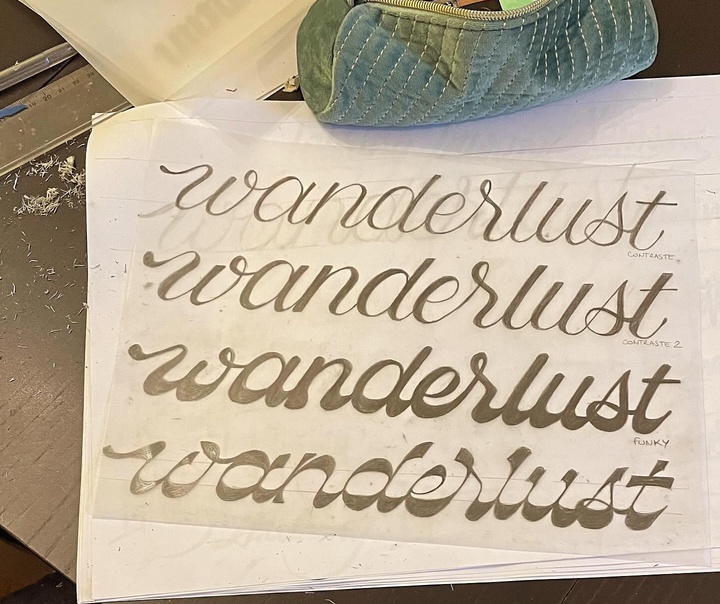 wanderlust
CONTRASTE
wanderlust
CONTRASTE 2
wanderlust
FUNKY
wanderlust